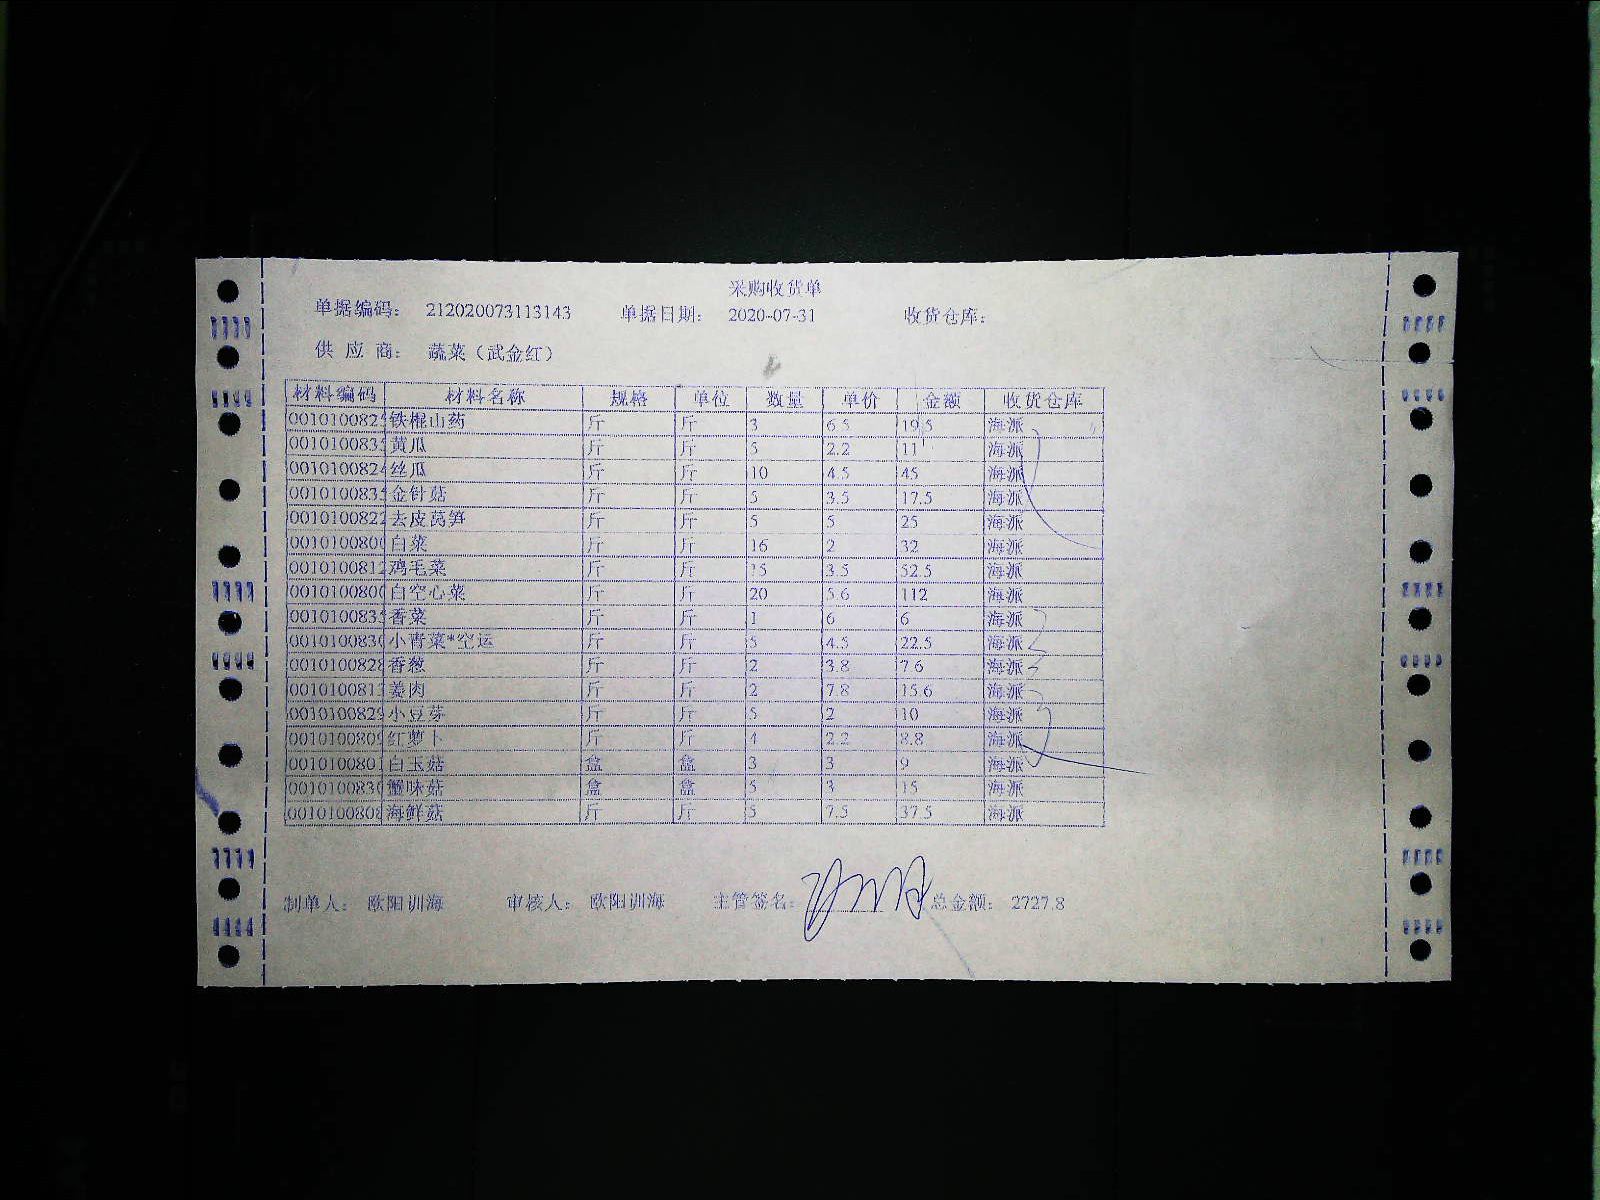 采购收货单
单据编码： 212020073113143 单据日期： 2020-07-31 收货仓库：
供 应 商： 蔬菜（武金红）
材料编码 材料名称 规格 单位 数量 单价 金额 收货仓库
001010082 铁棍山药 斤 斤 3 6.5 19.5 海派
001010083 黄瓜 斤 斤 5 2.2 11 海派
001010082 丝瓜 斤 斤 10 4.5 45 海派
001010083 金针菇 斤 斤 5 3.5 17.5 海派
001010082 去皮莴笋 斤 斤 5 5 25 海派
001010080 白菜 斤 斤 16 2 32 海派
001010081 鸡毛菜 斤 斤 15 3.5 52.5 海派
001010080 白空心菜 斤 斤 20 5.6 112 海派
001010083 香菜 斤 斤 1 6 6 海派
001010083 小青菜*空运 斤 斤 5 4.5 22.5 海派
001010082 香葱 斤 斤 2 3.8 7.6 海派
001010081 姜肉 斤 斤 2 7.8 15.6 海派
001010082 小豆芽 斤 斤 5 2 10 海派
001010080 红萝卜 斤 斤 4 2.2 8.8 海派
001010080 白玉菇 盒 盒 3 3 9 海派
001010083 蟹味菇 盒 盒 5 3 15 海派
001010080 海鲜菇 斤 斤 5 7.5 37.5 海派
制单人： 欧阳训海 审核人： 欧阳训海 主管签名： 总金额： 2727.8